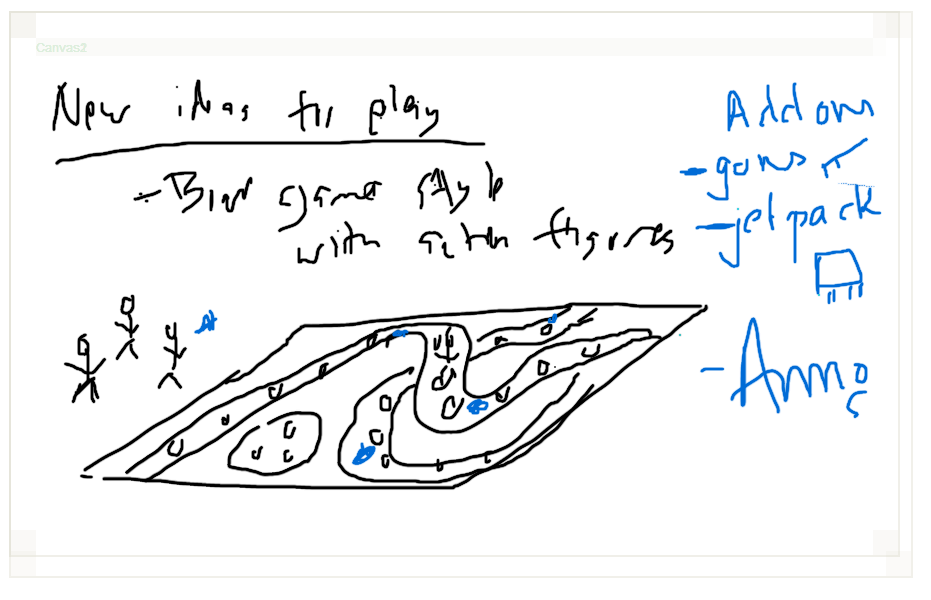 Canvas2
New ideas for play
- Board game style
with action figures
Add ons
- guns
- jetpack
- Ammo